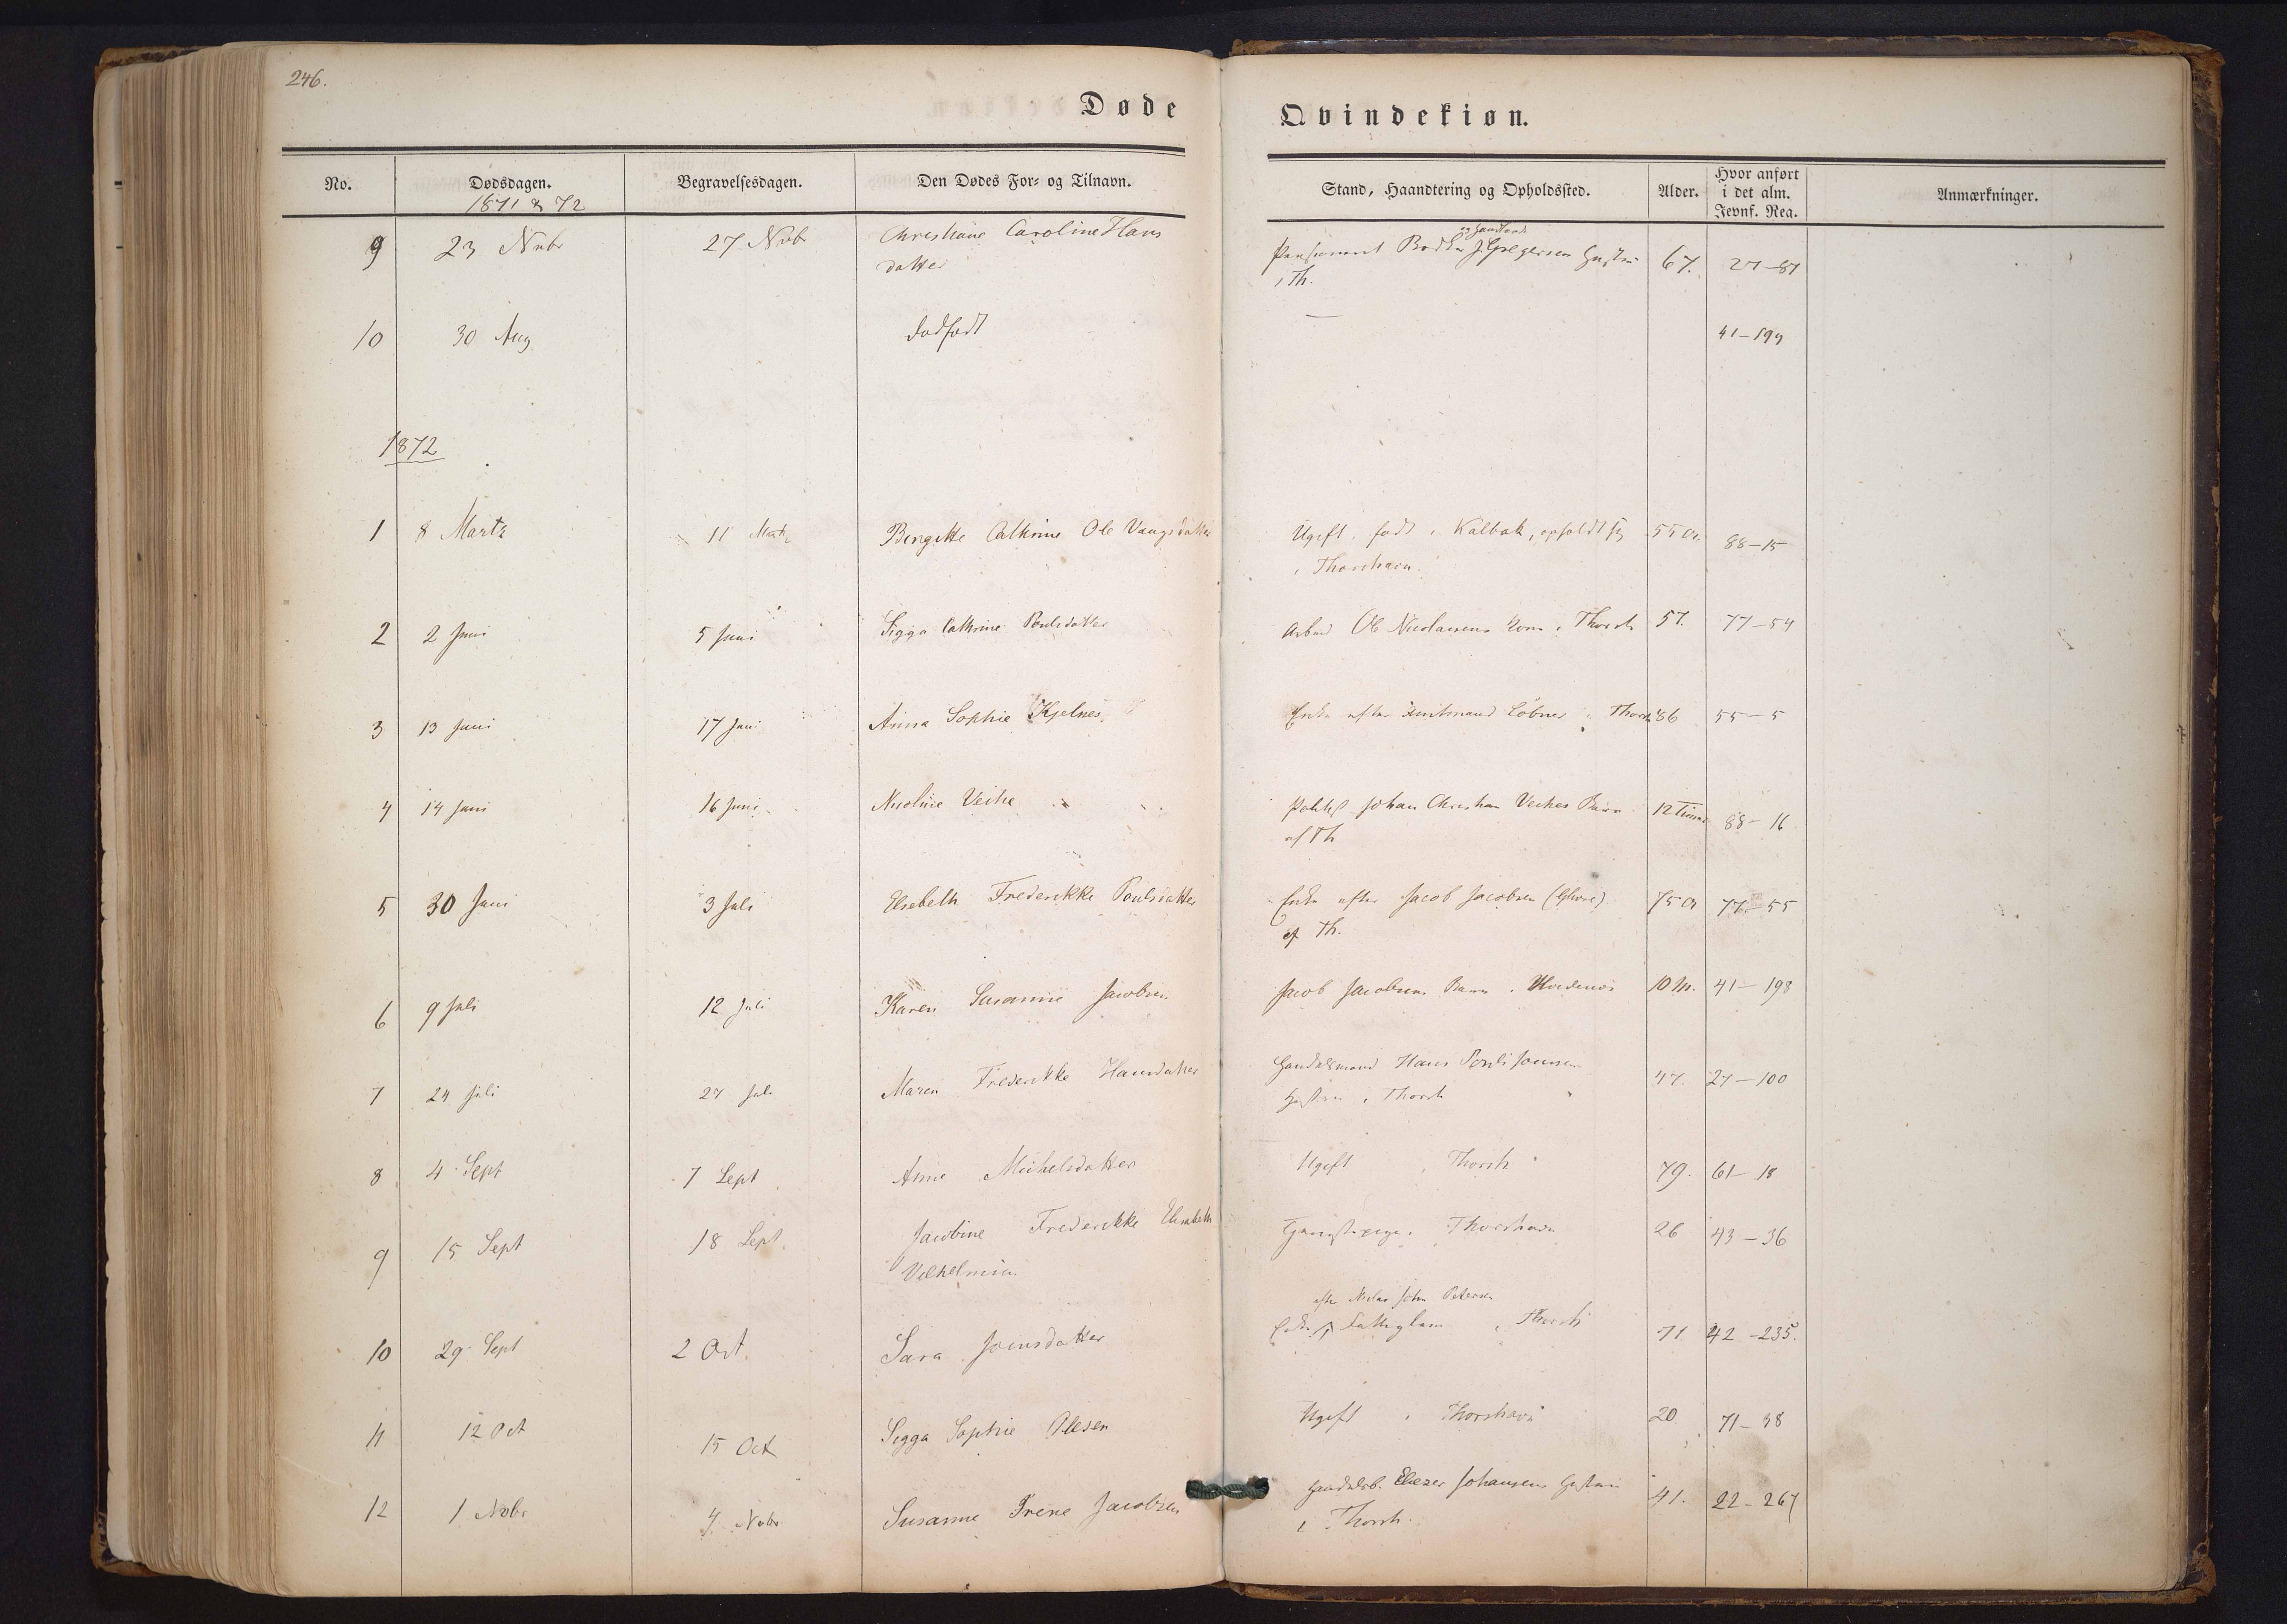 246.
Døde
Qvindekiøn.
No. Dødsdagen. Begravelsesdagen. Den Dødes For- og Tilnavn. Stand, Haandtering og Opholdssted. Alder. Hvor anført i det alm. Jevnf. Reg. Anmærkninger.
1871 & 72
9 23 Nvbr 27 Nvbr Christiane Caroline Hans 67. 27-87
datter i Th.
10 30 Aug dødfødt 41-199
1872
1 8 Martz 11 Martz Bergitte Cathrine Ole Vangsdatter Ugift, født i Kalbak, opholdt sig 55 Ar. 88-15
i Thorshavn.
2 2 Juni 5 Juni Sigga Cathrine Poulsdatter Arbmd Ole Nicolaisens Kone i Thorsh 57. 77-54
3 13 Juni 17 Juni Anna Sophie Kjelnes Enke efter Amtmand Löbner i Thorsh 86 55-5
4 14 Juni 16 Juni Nicoline Veihe Johan Christian Veihes Barn 12 Timer 88-16
af Th
5 30 Juni 3 Juli Elsebeth Frederikke Poulsdatter Enke efter Jacob Jacobsen 75 Ar 77-55
af Th.
6 9 Juli 12 Juli Karen Susanne Jacobsen Jacob Jacobsens Barn i 10 M. 41-198
7 24 Juli 27 Juli Maren Frederikke Hansdatter Handelsmand Hans Poul Joensen 47. 27-100
Hustru i Thorsh
8 4 Sept 7 Sept Anne Michelsdatter Ugift i Thorsh 79. 61-18
9 15 Sept 18 Sept. Jacobine Frederikke Elisabeth Tjenestepige i Thorshavn 26 43-36
Vilhelmine
efter Niclas John Petersen
10 29 Sept 2 Oct. Sara Joensdatter Enke Fattiglem i Thorsh 71 42-235.
11 12 Oct 15 Oct Sigga Sophie Olesen Ugift i Thorshavn 20 71-38
12 1 Nvbr 4 Nvbr Susanne Irene Jacobsen Handelsb. Eliezer Johansens Hustru 41. 22-267
i Thorsh.